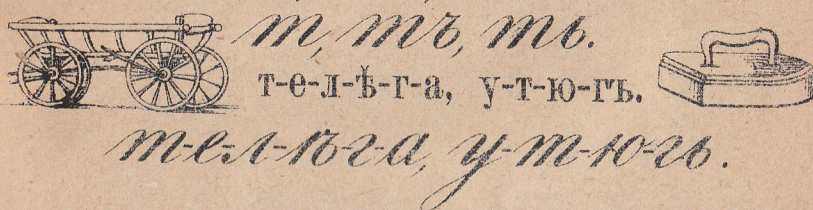 т, тъ, ть.
т-е-л-ѣ-г-а, у-т-ю-гъ.
т-е-л-ѣ-г-а, у-т-ю-гъ.